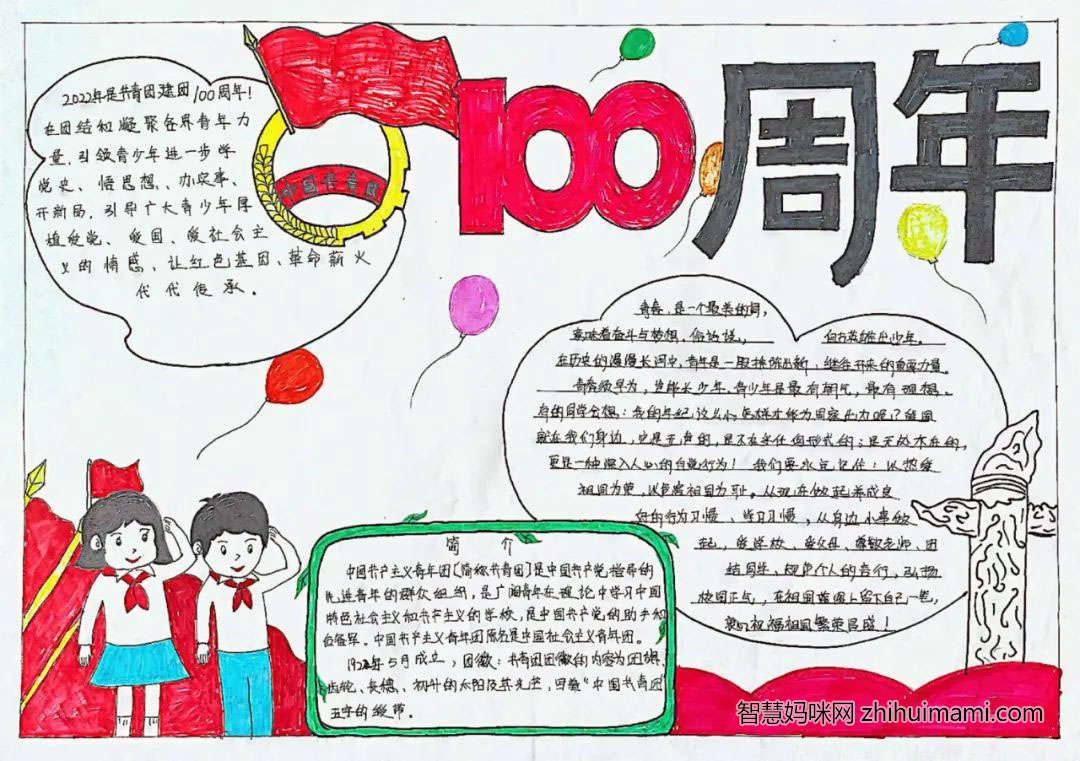 100周年
中国共青团
2022年是共青团建团100周年!
在团结和凝聚各界青年力
量,引领青少年进一步学
党史、悟思想、办实事、
开新局,引导广大青少年厚
植爱党、爱国、爱社会主
义的情感、让红色基因、革命薪火
代代传承。
青春,是一个最美的词,
意味着奋斗与梦想,俗话说, 自古英雄出少年。
在历史的漫漫长河中,青年是一股推陈出新,继往开来的重要力量。
青春须早为,岂能长少年,青少年是最有朝气,最有理想。
有的同学会想:我的年纪这么小,怎样才能为国家出力呢?爱国
就在我们身边,它是无声的,是不在乎任何形式的;是无处不在的,
更是一种深入人心的自觉行为!我们要永远记住:以热爱
祖国为荣,以危害祖国为耻。从现在做起养成良
好的行为习惯、学习习惯,从身边小事做
起,爱学校、爱父母、尊敬老师、团
结同学、规范个人的言行,弘扬
校园正气,在祖国
祝福祖国繁荣昌盛!
简 介
中国共产主义青年团(简称共青团)是中国共产党指导的
先进青年的群众组织,是广阔青年在理论中学习中国
特色社会主义和共产主义的学校,是中国共产党的助手和
后备军。中国共产主义青年团原名是中国社会主义青年团。
1922年5月成立,团徽:共青团团徽的内容为团旗、
齿轮、麦穗、初升的太阳及其光芒,写着“中国共青团”
五字的绶带。
智慧妈咪网 zhihuimami.com